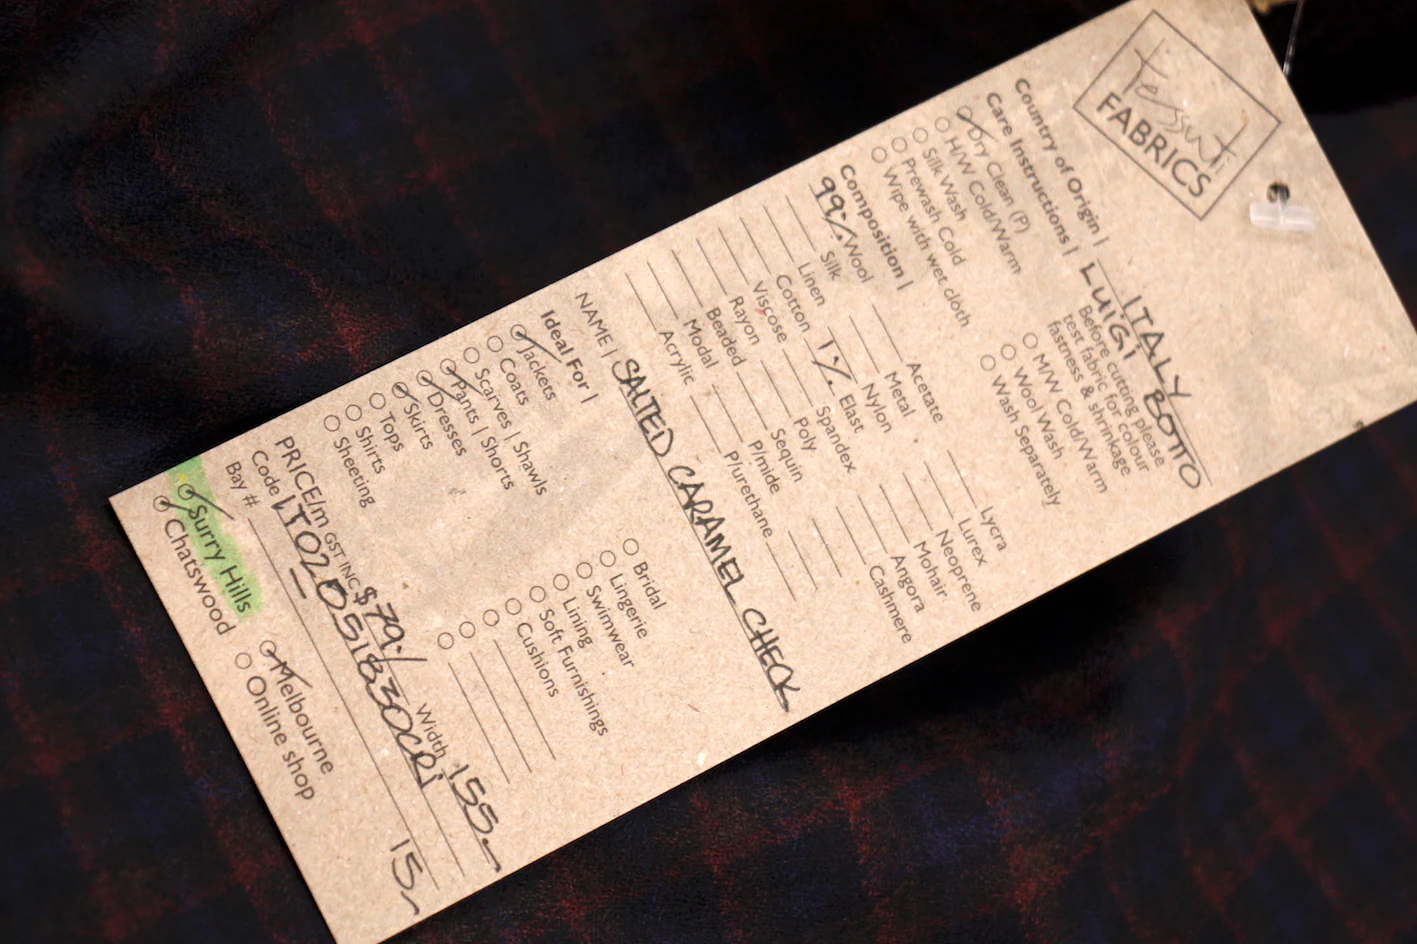 Tessuti
FABRICS
Country of Origin | ITALY
LUIGI BOTTO
Care Instructions |
Before cutting please
test fabric for colour
fastness & shrinkage
Dry Clean (P)
H/W Cold/Warm
Silk Wash
Prewash Cold
Wipe with wet cloth
M/W Cold/Warm
Wool Wash
Wash Separately
Composition |
99% Wool
Silk
Linen
Cotton
Viscose
Rayon
Beaded
Modal
Acrylic
Acetate
Metal
Nylon
1% Elast
Spandex
Poly
Sequin
P/mide
P/urethane
Lycra
Lurex
Neoprene
Mohair
Angora
Cashmere
NAME | SALTED CARAMEL CHECK
Ideal For |
Jackets
Coats
Scarves | Shawls
Pants | Shorts
Dresses
Skirts
Tops
Shirts
Sheeting
Bridal
Lingerie
Swimwear
Lining
Soft Furnishings
Cushions
PRICE/m GST INC $79./ Width 155
Code
Bay # 15
Surry Hills
Chatswood
Melbourne
Online shop